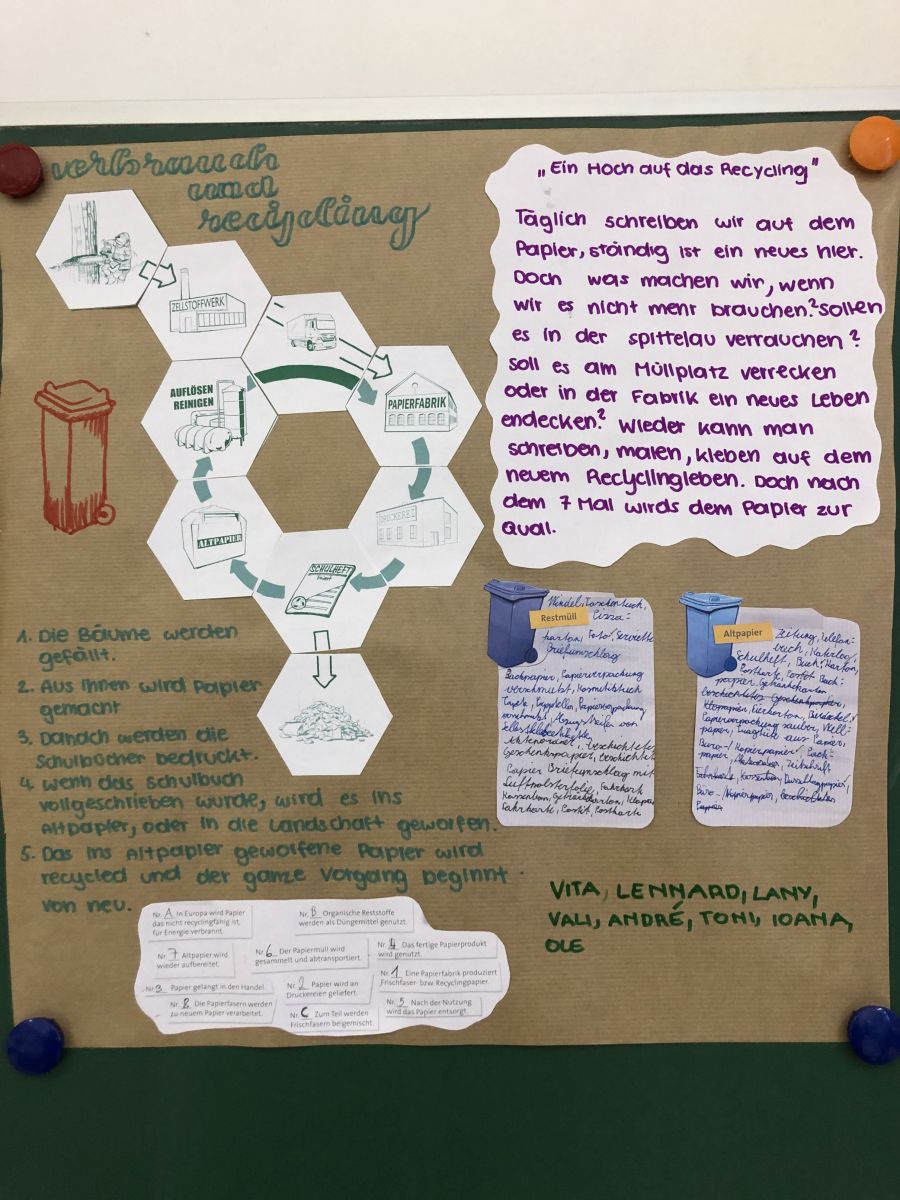 verbrauch
und
recycling
ZELLSTOFFWERK
AUFLÖSEN
REINIGEN
PAPIERFABRIK
ALTPAPIER
DRUCKEREI
SCHULHEFT
„Ein Hoch auf das Recycling"
Täglich schreiben wir auf dem
Papier, ständig ist ein neues hier.
Doch was machen wir, wenn
wir es nicht mehr brauchen? Sollen
es in der spittelau verrauchen?
soll es am Müllplatz verrecken
oder in der Fabrik ein neues Leben
endecken? Wieder kann man
schreiben, malen, kleben auf dem
neuem Recyclingleben. Doch nach
dem 7 Mal wirds dem Papier zur
Qual.
1. Die Bäume werden
gefällt.
2. Aus ihnen wird Papier
gemacht
3. Danach werden die
Schulbücher bedruckt.
4. wenn das Schulbuch
vollgeschrieben wurde, wird es ins
Altpapier, oder in die Landschaft geworfen.
5. Das ins Altpapier geworfene Papier wird
recycled und der ganze Vorgang beginnt
von neu.
Restmüll
Windel, Taschentuch,
Pizza-
karton, Foto, Serviette
Briefumschlag
Backpapier, Papierverpackung
verschmutzt,
Tapete, Pappteller, Papierverpackung
verschmutzt,
Aktenordner, beschichtetes
Geschenkspapier,
Papier Briefumschlag mit
Luftpolsterfolie, Fahrkarte
Kassenbon, Getränkekarton,
Fahrkarte, Postit, Postkarte
Altpapier
Zeitung, Telefon-
buch, Katalog,
Schulheft, Buch, Karton,
Postkarte, Postit Back-
papier, Getränkekarton
beschichtetes Geschenkpapier,
Eierkarton,
Papierverpackung sauber, Well-
pappe, Tragtüte aus Papier,
Büro-/Kopierpapier, Pack-
papier, Zeitschrift
Fahrkarte, Kassenbon,
Büro-/Kopierpapier,
VITA, LENNARD, LANY,
VALI, ANDRÉ, TONI, IOANA,
OLE
Nr. A In Europa wird Papier
das nicht recyclingfähig ist,
für Energie verbrannt.
Nr. B Organische Reststoffe
werden als Düngemittel genutzt.
Nr. 7 Altpapier wird
wieder aufbereitet.
Nr. 6 Der Papiermüll wird
gesammelt und abtransportiert.
Nr. 4 Das fertige Papierprodukt
wird genutzt.
Nr. 3 Papier gelangt in den Handel.
Nr. 2 Papier wird an
Druckereien geliefert.
Nr. 1 Eine Papierfabrik produziert
Frischfaser- bzw. Recyclingpapier.
Nr. 8 Die Papierfasern werden
zu neuem Papier verarbeitet.
Nr. C Zum Teil werden
Frischfasern beigemischt.
Nr. 5 Nach der Nutzung
wird das Papier entsorgt.